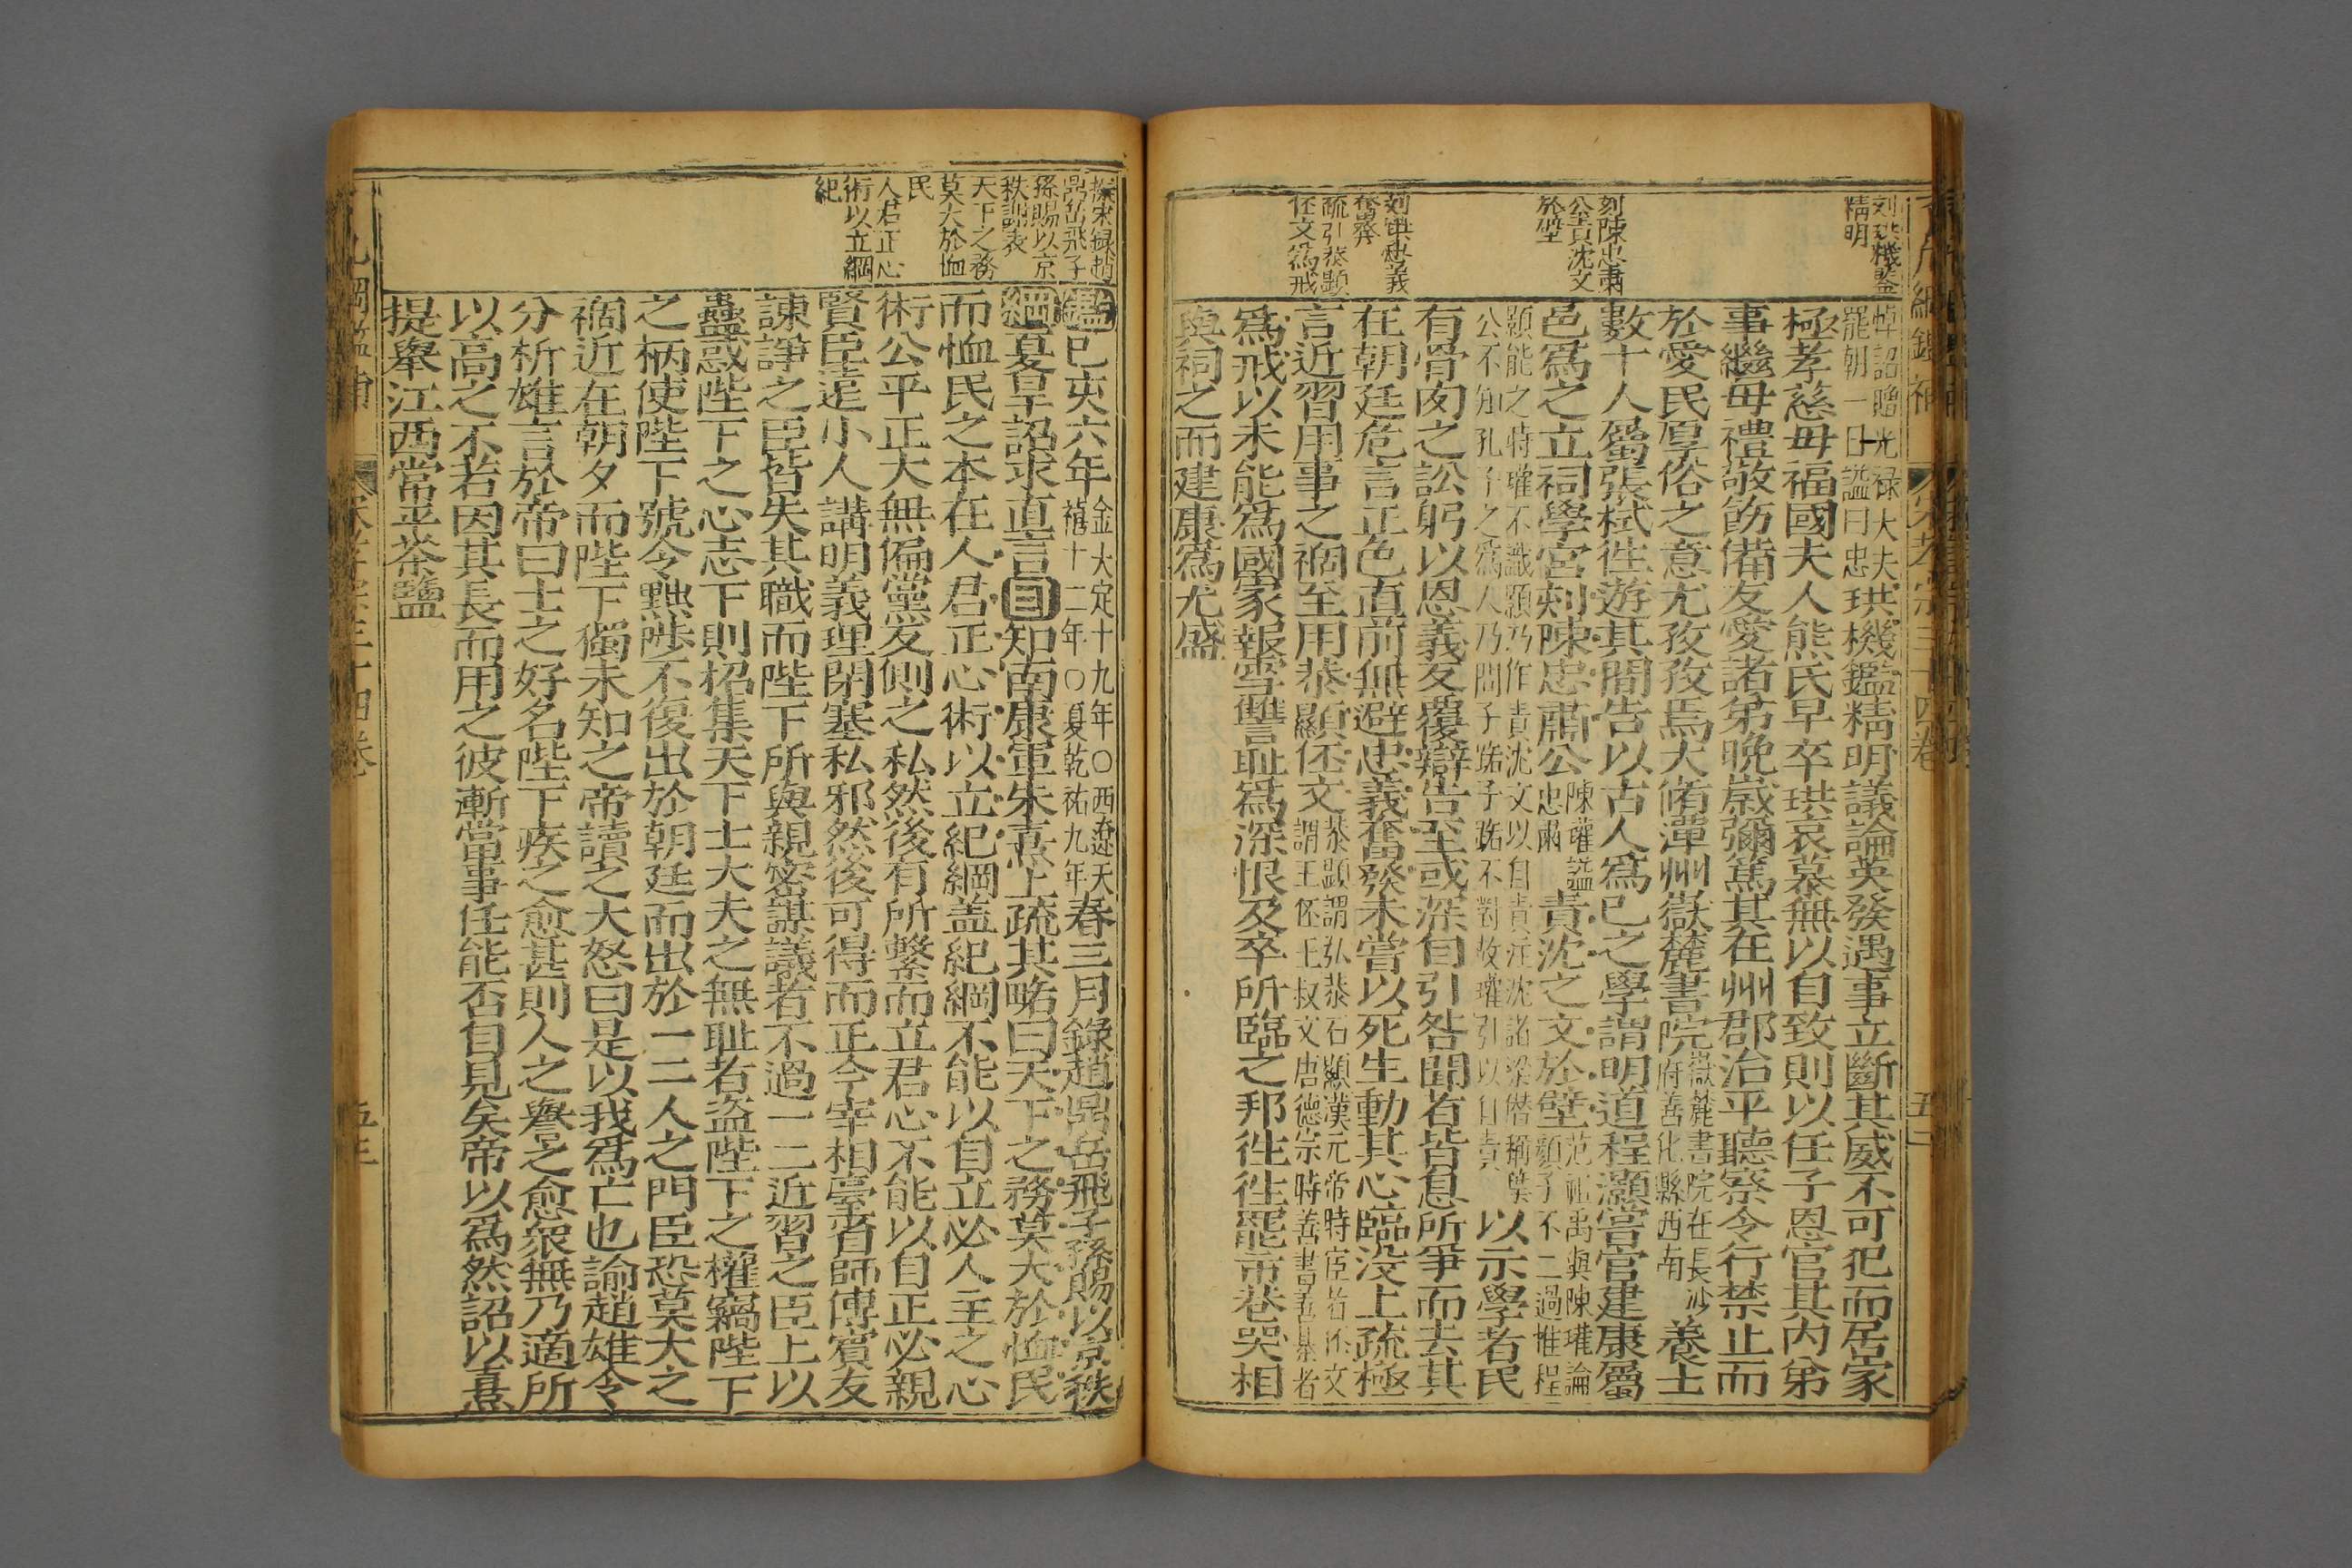 劉珙機鑒
精明
刻陳忠肅
公責沈文
於壁
劉珙忠義
奮發
疏引恭顯
伾文爲戒
悼詔贈光禄大夫珙機鑑精明議論英發遇事立斷其威不可犯而居家
罷朝一日謚曰忠
極孝慈母福國夫人熊氏早卒珙哀慕無以自致則以任子恩官其内弟
事繼母禮敬飭備友愛諸弟晩歲彌篤其在州郡治平聽察令行禁止而
於愛民厚俗之意尤孜孜焉大脩潭州嶽麓書院嶽麓書院在長沙
府善化縣西南養士
數十人屬張栻徃遊其間告以古人爲已之學謂明道程灝嘗官建康屬
邑爲之立祠學宮刻陳忠肅公陳瓘謚
忠肅責沈之文於壁范祖禹與陳瓘論
顔子不二過惟程
顥能之時瓘不識顥乃作責沈文以自責沈諸梁僣稱葉
公不知孔子之爲人乃問子路子路不對故瓘引以自責以示學者民
有骨肉之訟躬以恩義反覆辯告至或深自引咎聞者皆息所爭而去其
在朝廷危言正色直前無避忠義奮發未嘗以死生動其心臨没上疏極
言近習用事之禍至用恭顯伾文恭顯謂弘恭石顯漢元帝時宦者伾文
謂王伾王叔文唐德宗時善書善棊者
爲戒以未能爲國家報雪讐耻爲深恨及卒所臨之邦徃徃罷市巷哭相
與祠之而建康爲尤盛
宋孝宗三十四卷
五二
孫賜以京
秩謝表
天下之務
莫大於恤
民
人君正心
術以立綱
紀
鑑己亥六年金大定十九年○西遼天
禧十二年○夏乾祐九年春三月錄趙鼎岳飛子孫賜以京秩
綱夏旱詔求直言目知南康軍朱熹上疏其略曰天下之務莫大於恤民
而恤民之本在人君正心術以立紀綱蓋紀綱不能以自立必人主之心
術公平正大無偏黨反側之私然後有所繫而立君心不能以自正必親
賢臣遠小人講明義理閉塞私邪然後可得而正今宰相臺省師傅賓友
諫諍之臣皆失其職而陛下所與親密謀議者不過一二近習之臣上以
蠱惑陛下之心志下則招集天下士大夫之無耻者盗陛下之權竊陛下
之柄使陛下號令黜陟不復出於朝廷而出於一二人之門臣恐莫大之
禍近在朝夕而陛下獨未知之帝讀之大怒曰是以我爲亡也諭趙雄令
分析雄言於帝曰士之好名陛下疾之愈甚則人之譽之愈衆無乃適所
以高之不若因其長而用之彼漸當事任能否自見矣帝以爲然詔以熹
提舉江西常平茶鹽
五三